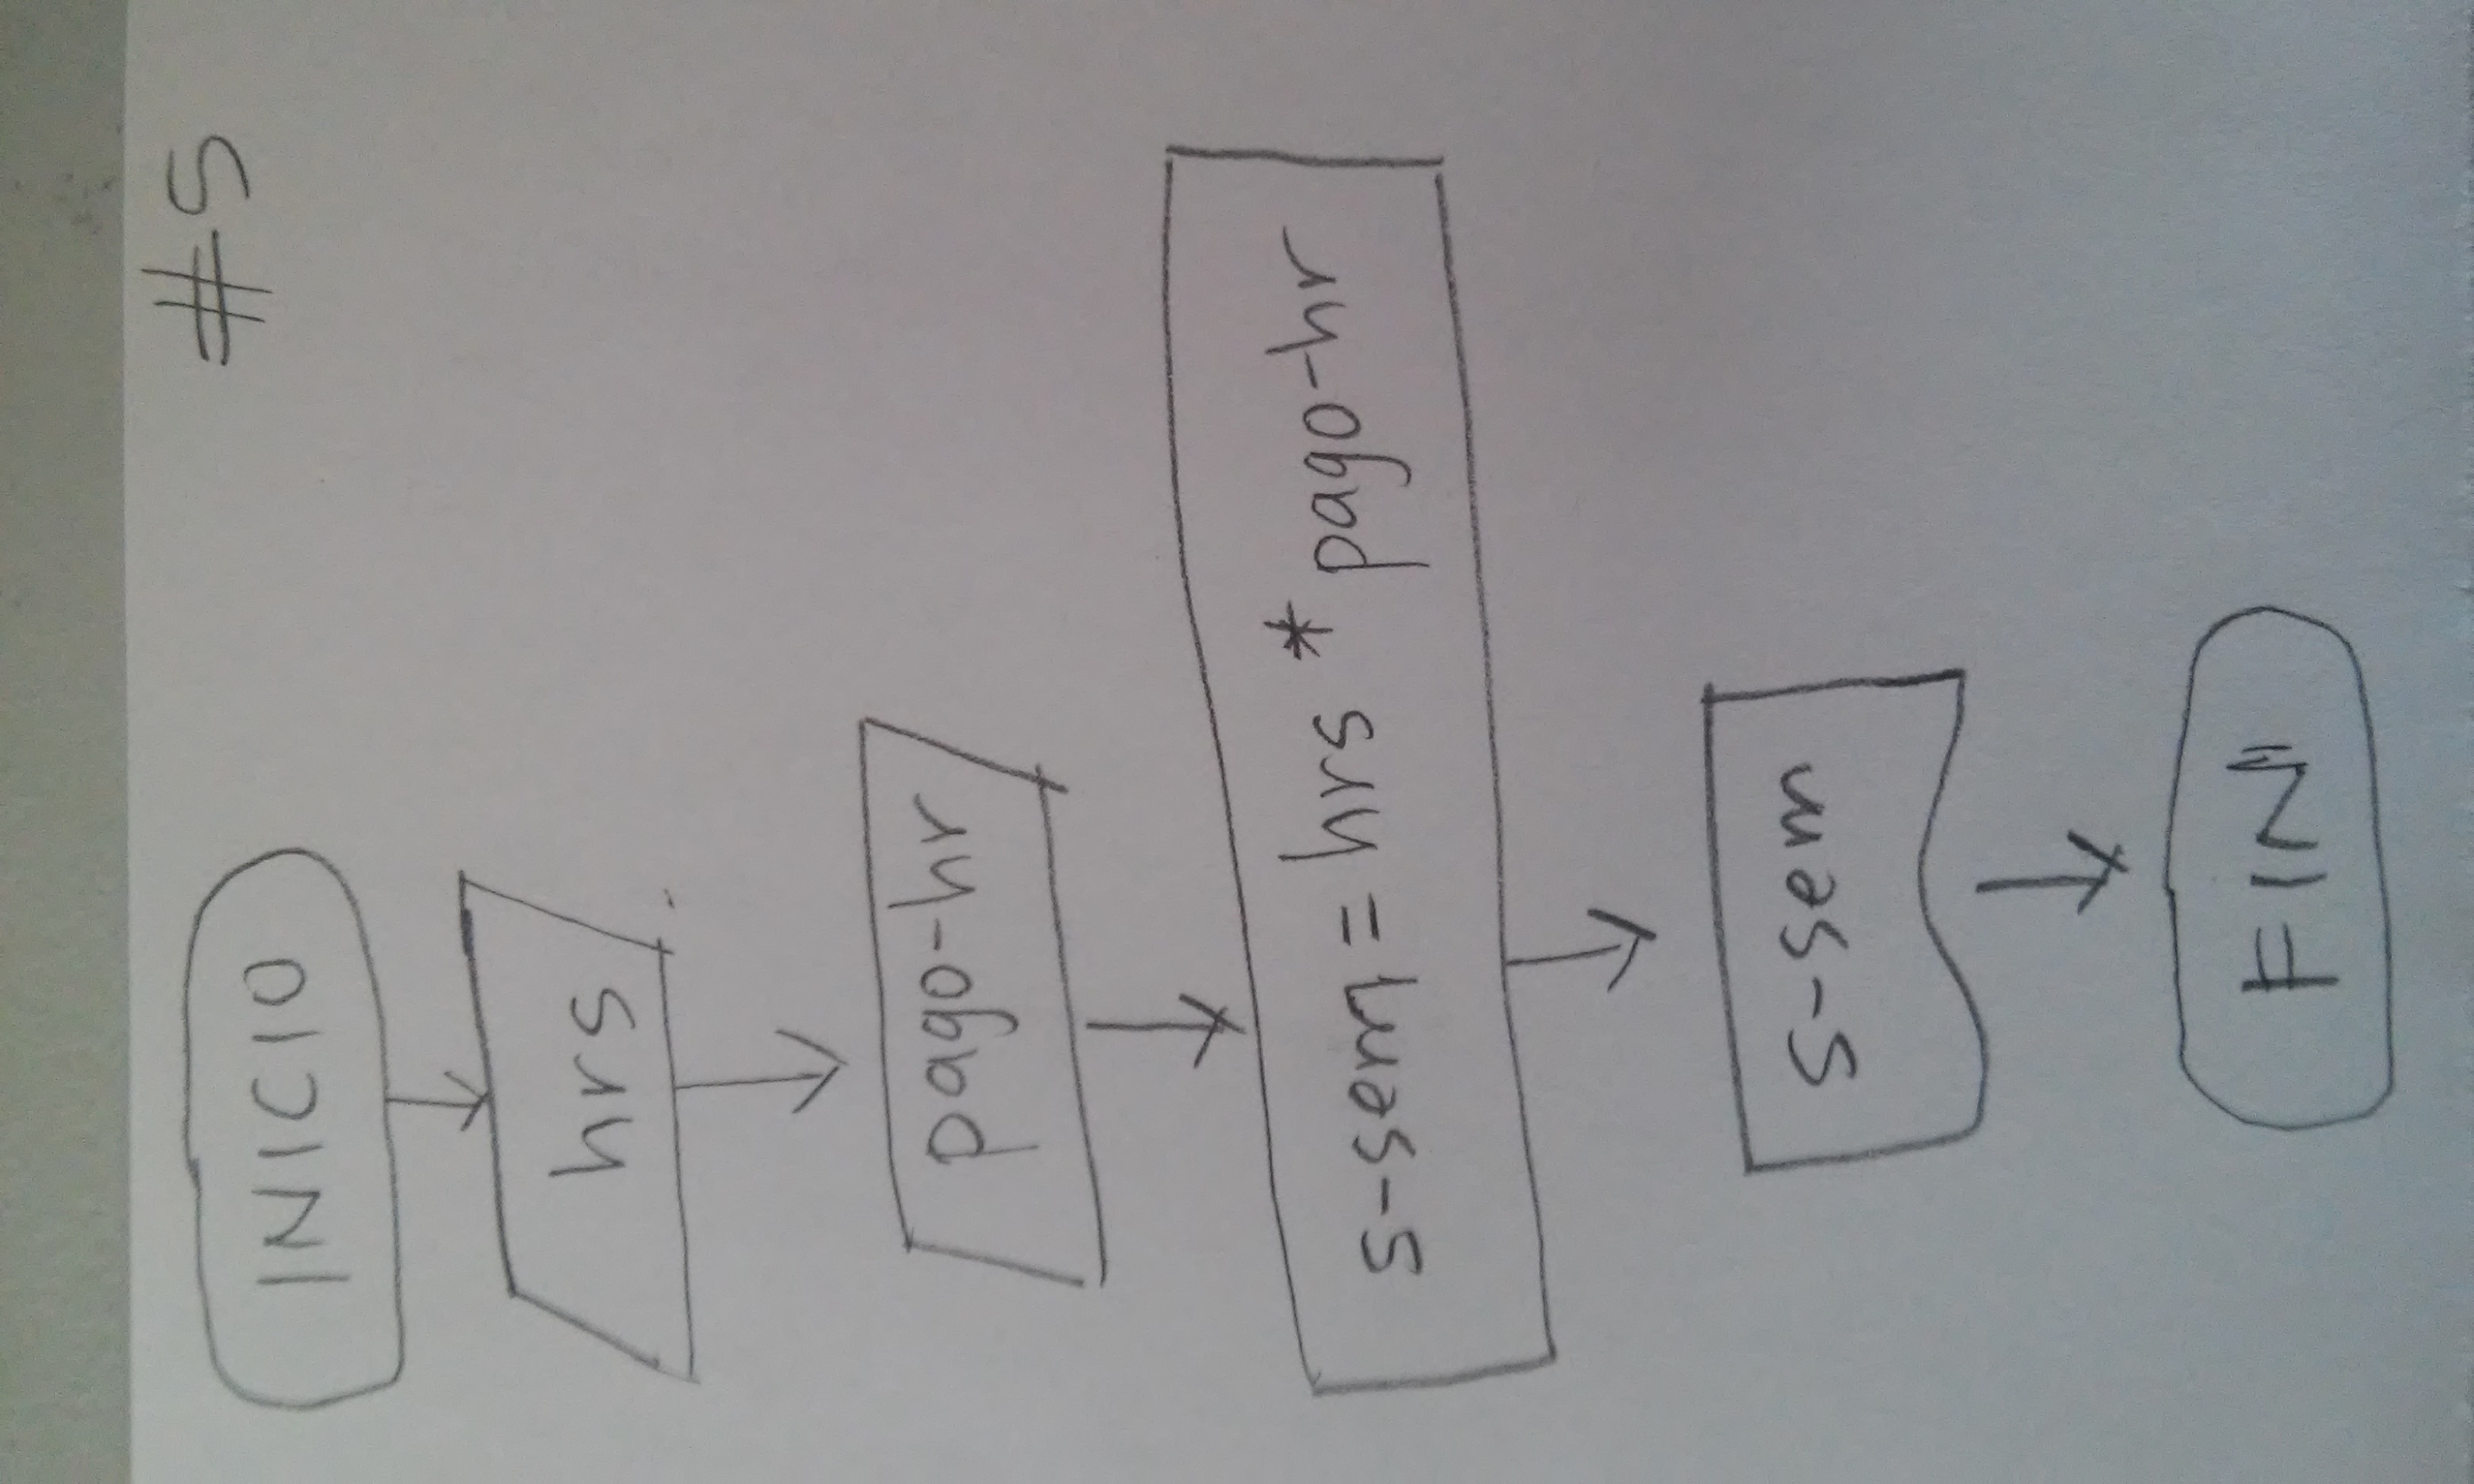 #5
INICIO
hrs
pago-hr
s-sem = hrs * pago-hr
s-sem
FIN